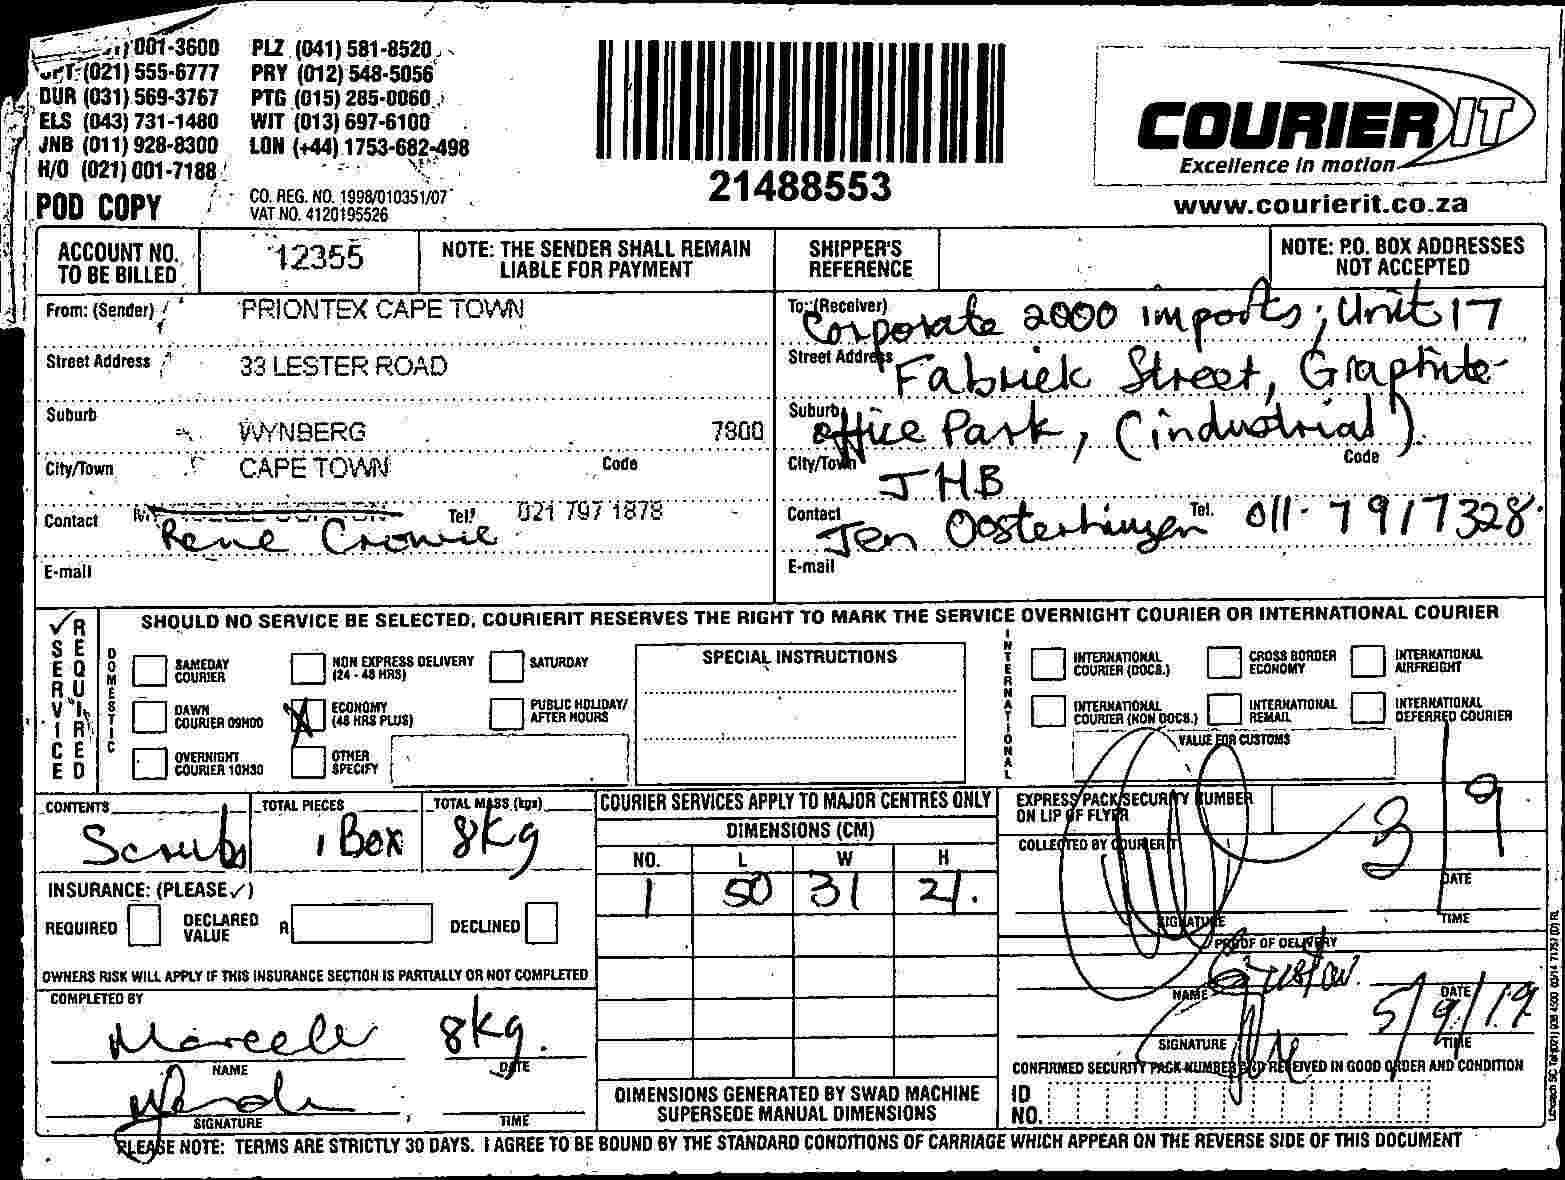 001-3600 PLZ (041) 581-8520
(021) 555-6777 PRY (012) 548-5056
DUR (031) 569-3767 PTG (015) 285-0060
ELS (043) 731-1480 WIT (013) 697-6100
JNB (011) 928-8300 LON (+44) 1753-682-498
H/O (021) 001-7188
POD COPY
CO. REG. NO. 1998/010351/07
VAT NO. 4120195526
21488553
COURIER IT
Excellence in motion
www.courierit.co.za
ACCOUNT NO. TO BE BILLED 12355
NOTE: THE SENDER SHALL REMAIN LIABLE FOR PAYMENT
SHIPPER'S REFERENCE
NOTE: P.O. BOX ADDRESSES NOT ACCEPTED
From: (Sender) PRIONTEX CAPE TOWN
Street Address 33 LESTER ROAD
Suburb WYNBERG 7800
City/Town CAPE TOWN Code
Contact Rene Crowie Tel: 021 797 1878
E-mail
To: (Receiver) Corporate 2000 imports, Unit 17
Street Address Fabriek Street, Graphite
Suburb office Park, (industrial).
City/Town JHB Code
Contact Jen Oosterhuizen Tel. 011-7917328
E-mail
✓ SERVICE REQUIRED
SHOULD NO SERVICE BE SELECTED, COURIERIT RESERVES THE RIGHT TO MARK THE SERVICE OVERNIGHT COURIER OR INTERNATIONAL COURIER
DOMESTIC
SAMEDAY COURIER
NON EXPRESS DELIVERY (24 - 48 HRS)
SATURDAY
DAWN COURIER 09H00
X ECONOMY (48 HRS PLUS)
PUBLIC HOLIDAY/ AFTER HOURS
OVERNIGHT COURIER 10H30
OTHER SPECIFY
SPECIAL INSTRUCTIONS
INTERNATIONAL
INTERNATIONAL COURIER (DOCS.)
CROSS BORDER ECONOMY
INTERNATIONAL AIRFREIGHT
INTERNATIONAL COURIER (NON DOCS.)
INTERNATIONAL REMAIL
INTERNATIONAL DEFERRED COURIER
VALUE FOR CUSTOMS
CONTENTS Scrubs
TOTAL PIECES 1 Box
TOTAL MASS (kgs) 8kg
INSURANCE: (PLEASE ✓)
REQUIRED DECLARED VALUE R DECLINED
OWNERS RISK WILL APPLY IF THIS INSURANCE SECTION IS PARTIALLY OR NOT COMPLETED
COMPLETED BY
Marcelle 8kg.
NAME DATE
SIGNATURE TIME
COURIER SERVICES APPLY TO MAJOR CENTRES ONLY
DIMENSIONS (CM)
NO. L W H
1 50 31 21.
DIMENSIONS GENERATED BY SWAD MACHINE SUPERSEDE MANUAL DIMENSIONS
EXPRESS PACK/SECURITY NUMBER ON LIP OF FLYER
COLLECTED BY COURIER IT
3/9
DATE
SIGNATURE TIME
PROOF OF DELIVERY
Gustav.
NAME DATE
5/9/19
SIGNATURE TIME
CONFIRMED SECURITY PACK NUMBER AND RECEIVED IN GOOD ORDER AND CONDITION
ID NO.
PLEASE NOTE: TERMS ARE STRICTLY 30 DAYS. I AGREE TO BE BOUND BY THE STANDARD CONDITIONS OF CARRIAGE WHICH APPEAR ON THE REVERSE SIDE OF THIS DOCUMENT